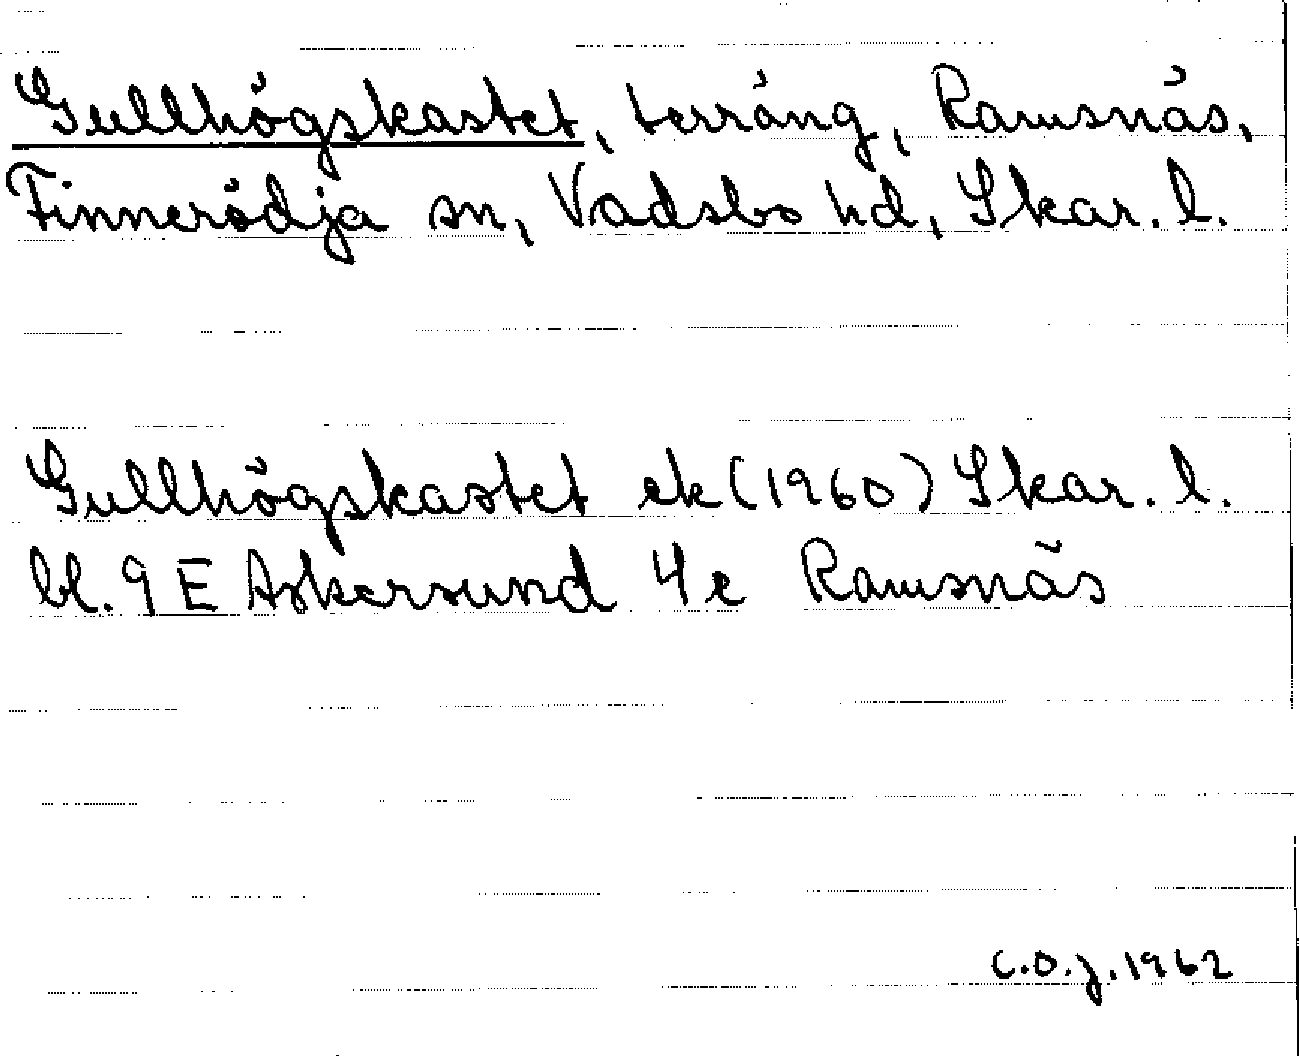 Gullhögskastet, terräng, Ramsnäs,
Finnerödja sn, Vadsbo hd, Skar. l.
Gullhögskastet ek (1960) Skar. l.
bl. 9 E Askersund 4 e Ramsnäs
C.O.J. 1962